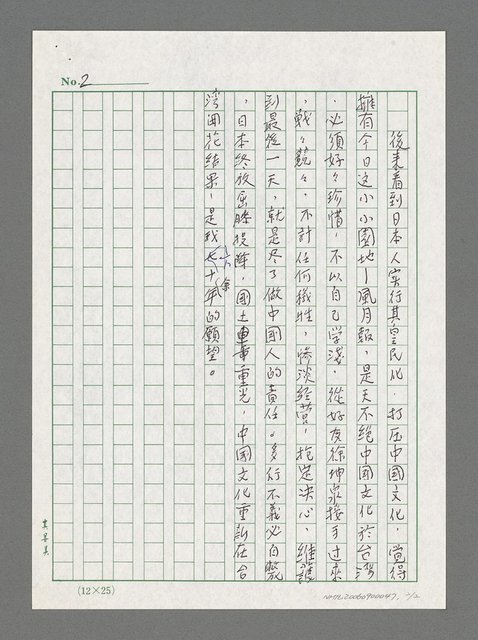 No. 2
後來看到日本人实行其皇民化，打压中國文化，覺得
擁有今日这小小園地—風月報，是天不絕中國文化於台灣
，必須好々珍惜，不以自己学淺，從好友徐坤泉接手过來
，戰々兢々，不計任何犧牲，慘淡经营，抱定决心，維護
到最後一天，就是尽了做中國人的責任。多行不義必自斃
，日本終於屈膝投降，國土重光，中國文化重新在台
灣開花結果，是我七十餘年的願望。
(12×25)
NMTL20060900047, 2/2